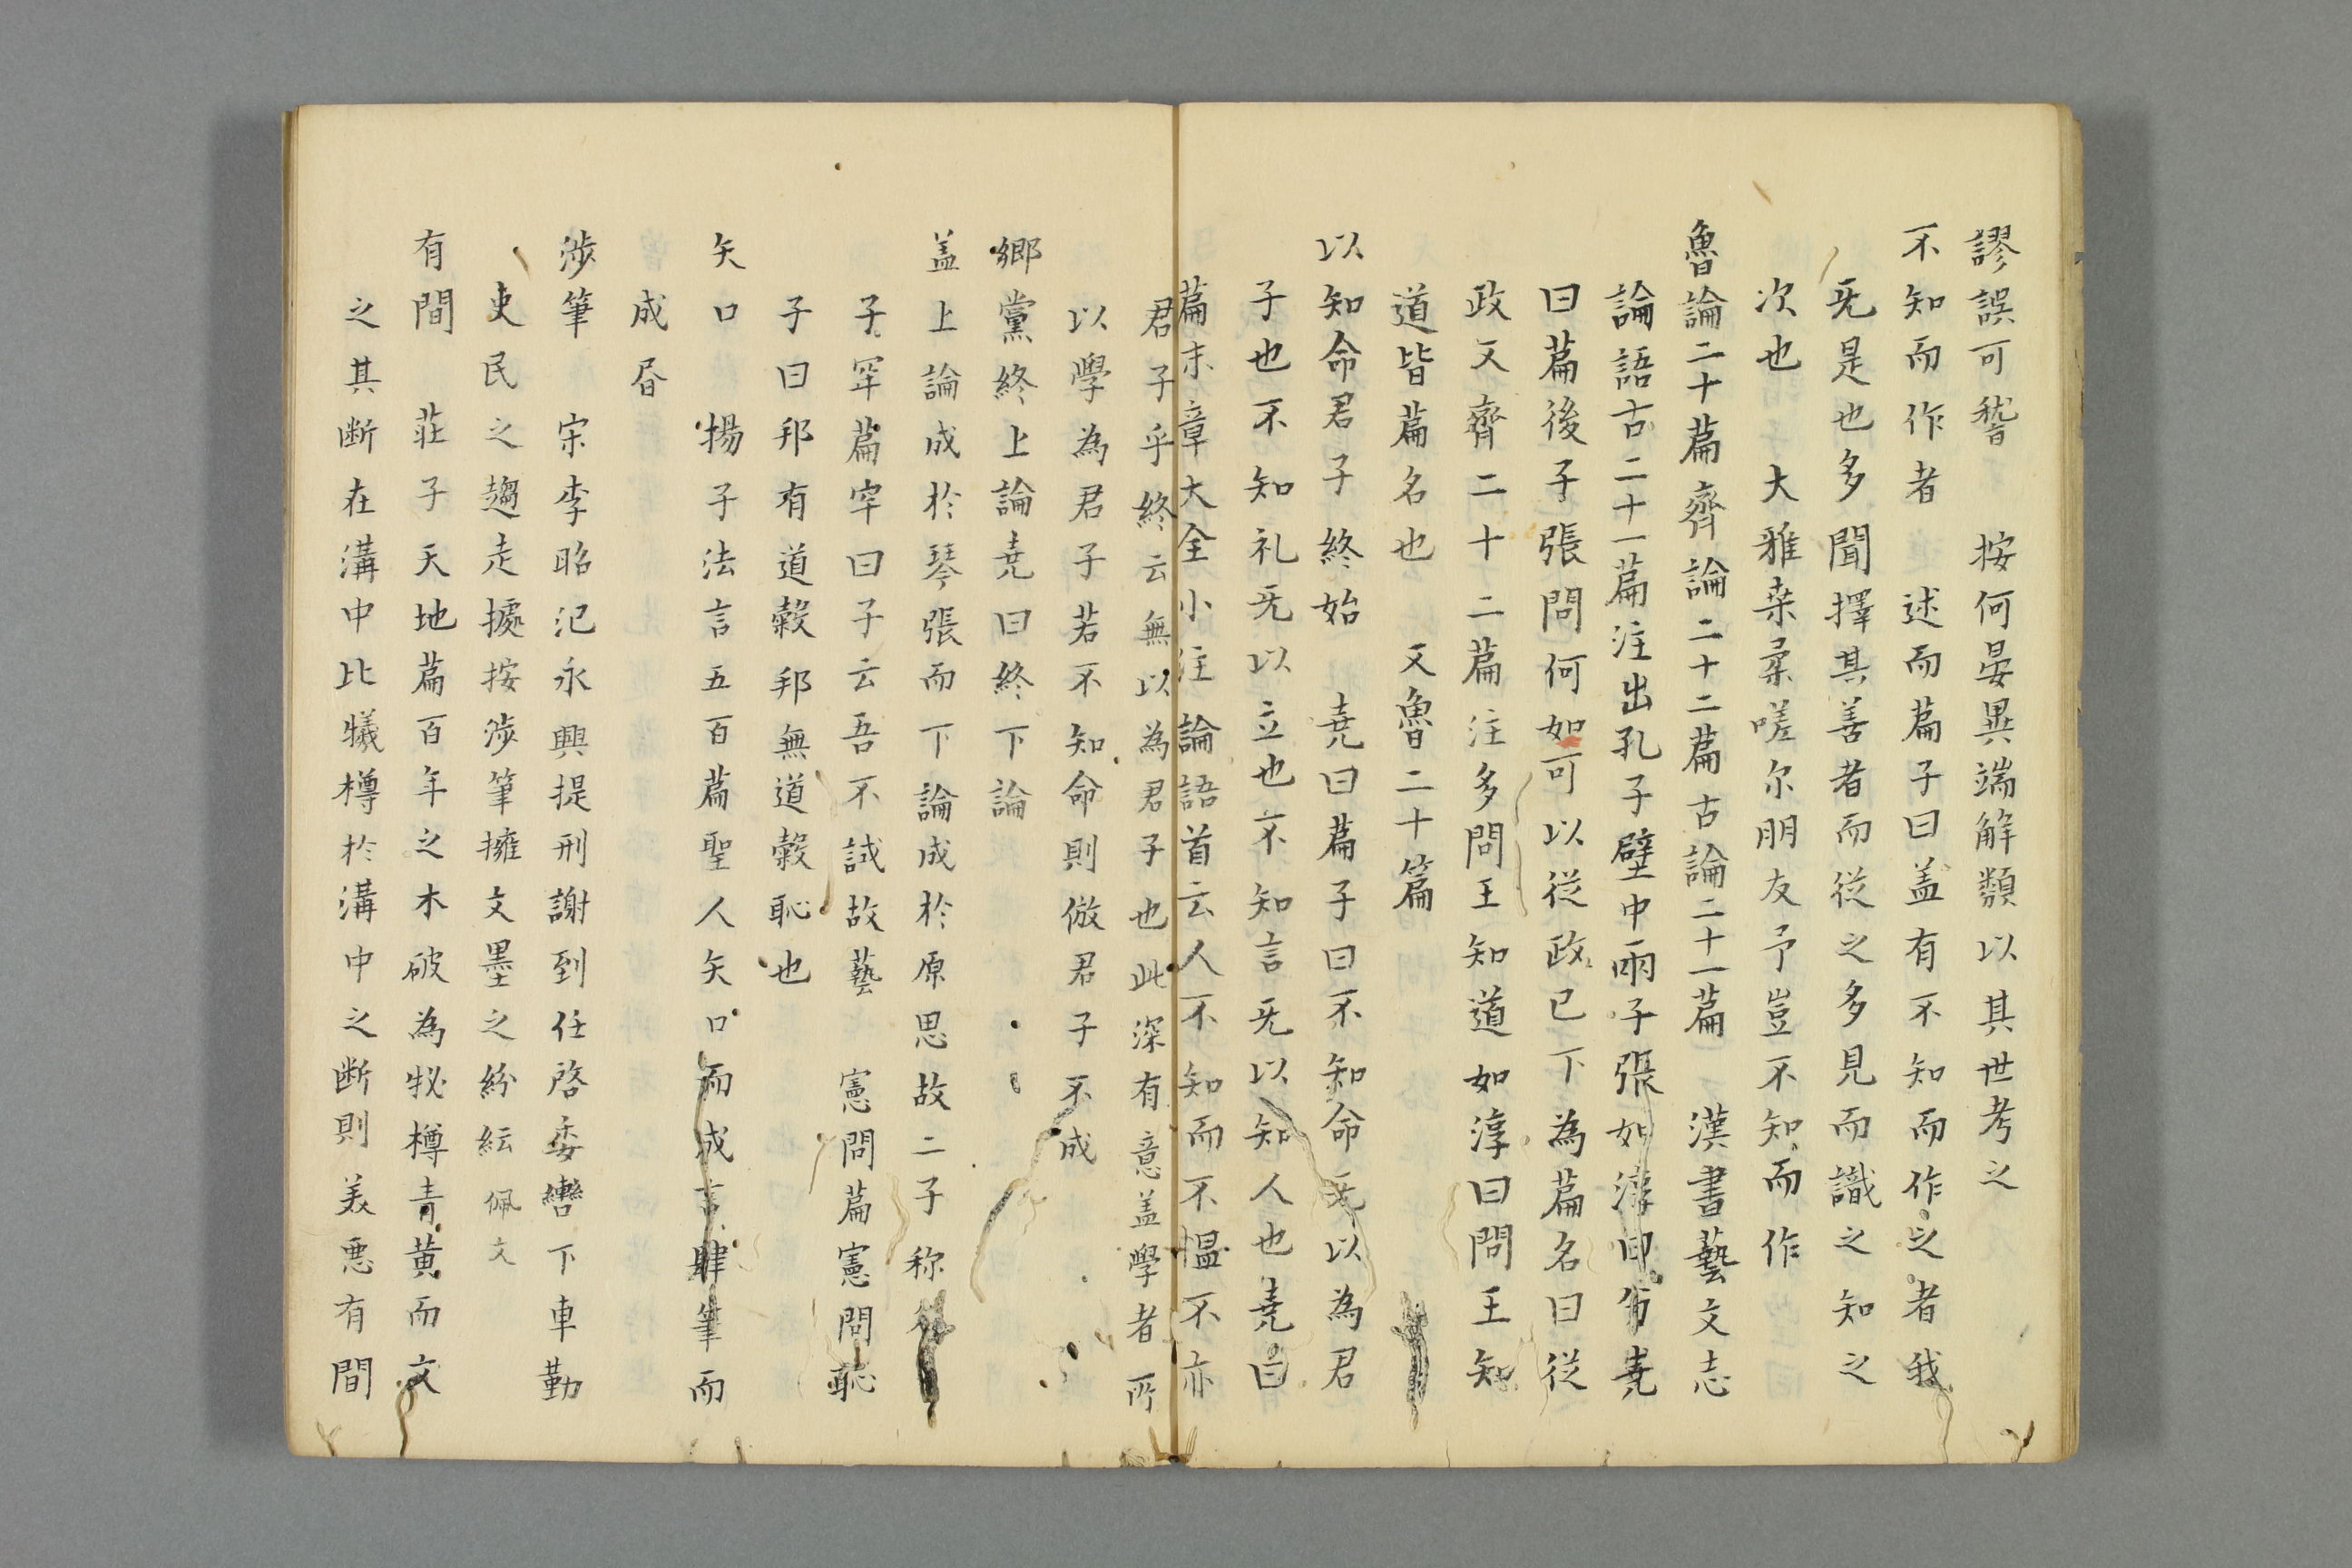 謬誤可嵆　按何晏異端解類以其世考之
不知而作者　述而篇子曰盖有不知而作之者我
旡是也多聞擇其善者而從之多見而識之知之
次也　大雅桒柔嗟尔朋友予豈不知而作
魯論二十篇齊論二十二篇古論二十一篇　漢書藝文志
論語古二十一篇注出孔子壁中兩子張如淳曰分堯
曰篇後子張問何如可以從政已下為篇名曰從
政又齊二十二篇注多問王知道如淳曰問王知
道皆篇名也　又魯二十篇
以知命君子終始　堯曰篇子曰不知命旡以為君
子也不知礼旡以立也不知言旡以知人也堯曰
篇末章大全小注論語首云人不知而不慍不亦
君子乎終云無以為君子也此深有意盖學者所
以學為君子若不知命則做君子不成
鄉黨終上論堯曰終下論
盖上論成於琴張而下論成於原思故二子称名
子罕篇牢曰子云吾不試故藝　憲問篇憲問恥
子曰邦有道穀邦無道穀恥也
矢口　揚子法言五百篇聖人矢口而成言肆筆而
成昏
涉筆　宋李昭汜永興提刑謝到任啓委轡下車勤
吏民之趨走據按涉筆擁文墨之紛紜佩文
有間　莊子天地篇百年之木破為牧樽青黄而文
之其断在溝中比犧樽於溝中之断則美悪有間